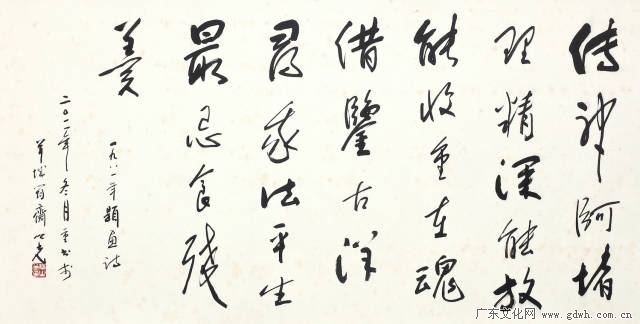 传神阿堵
理精深能放
能收重在魂
借鑒古洋
寻我法平生
最忌食残
羹
一九八一年题画诗
冬月重书于
羊城
广东文化网 www.gdwh.com.cn